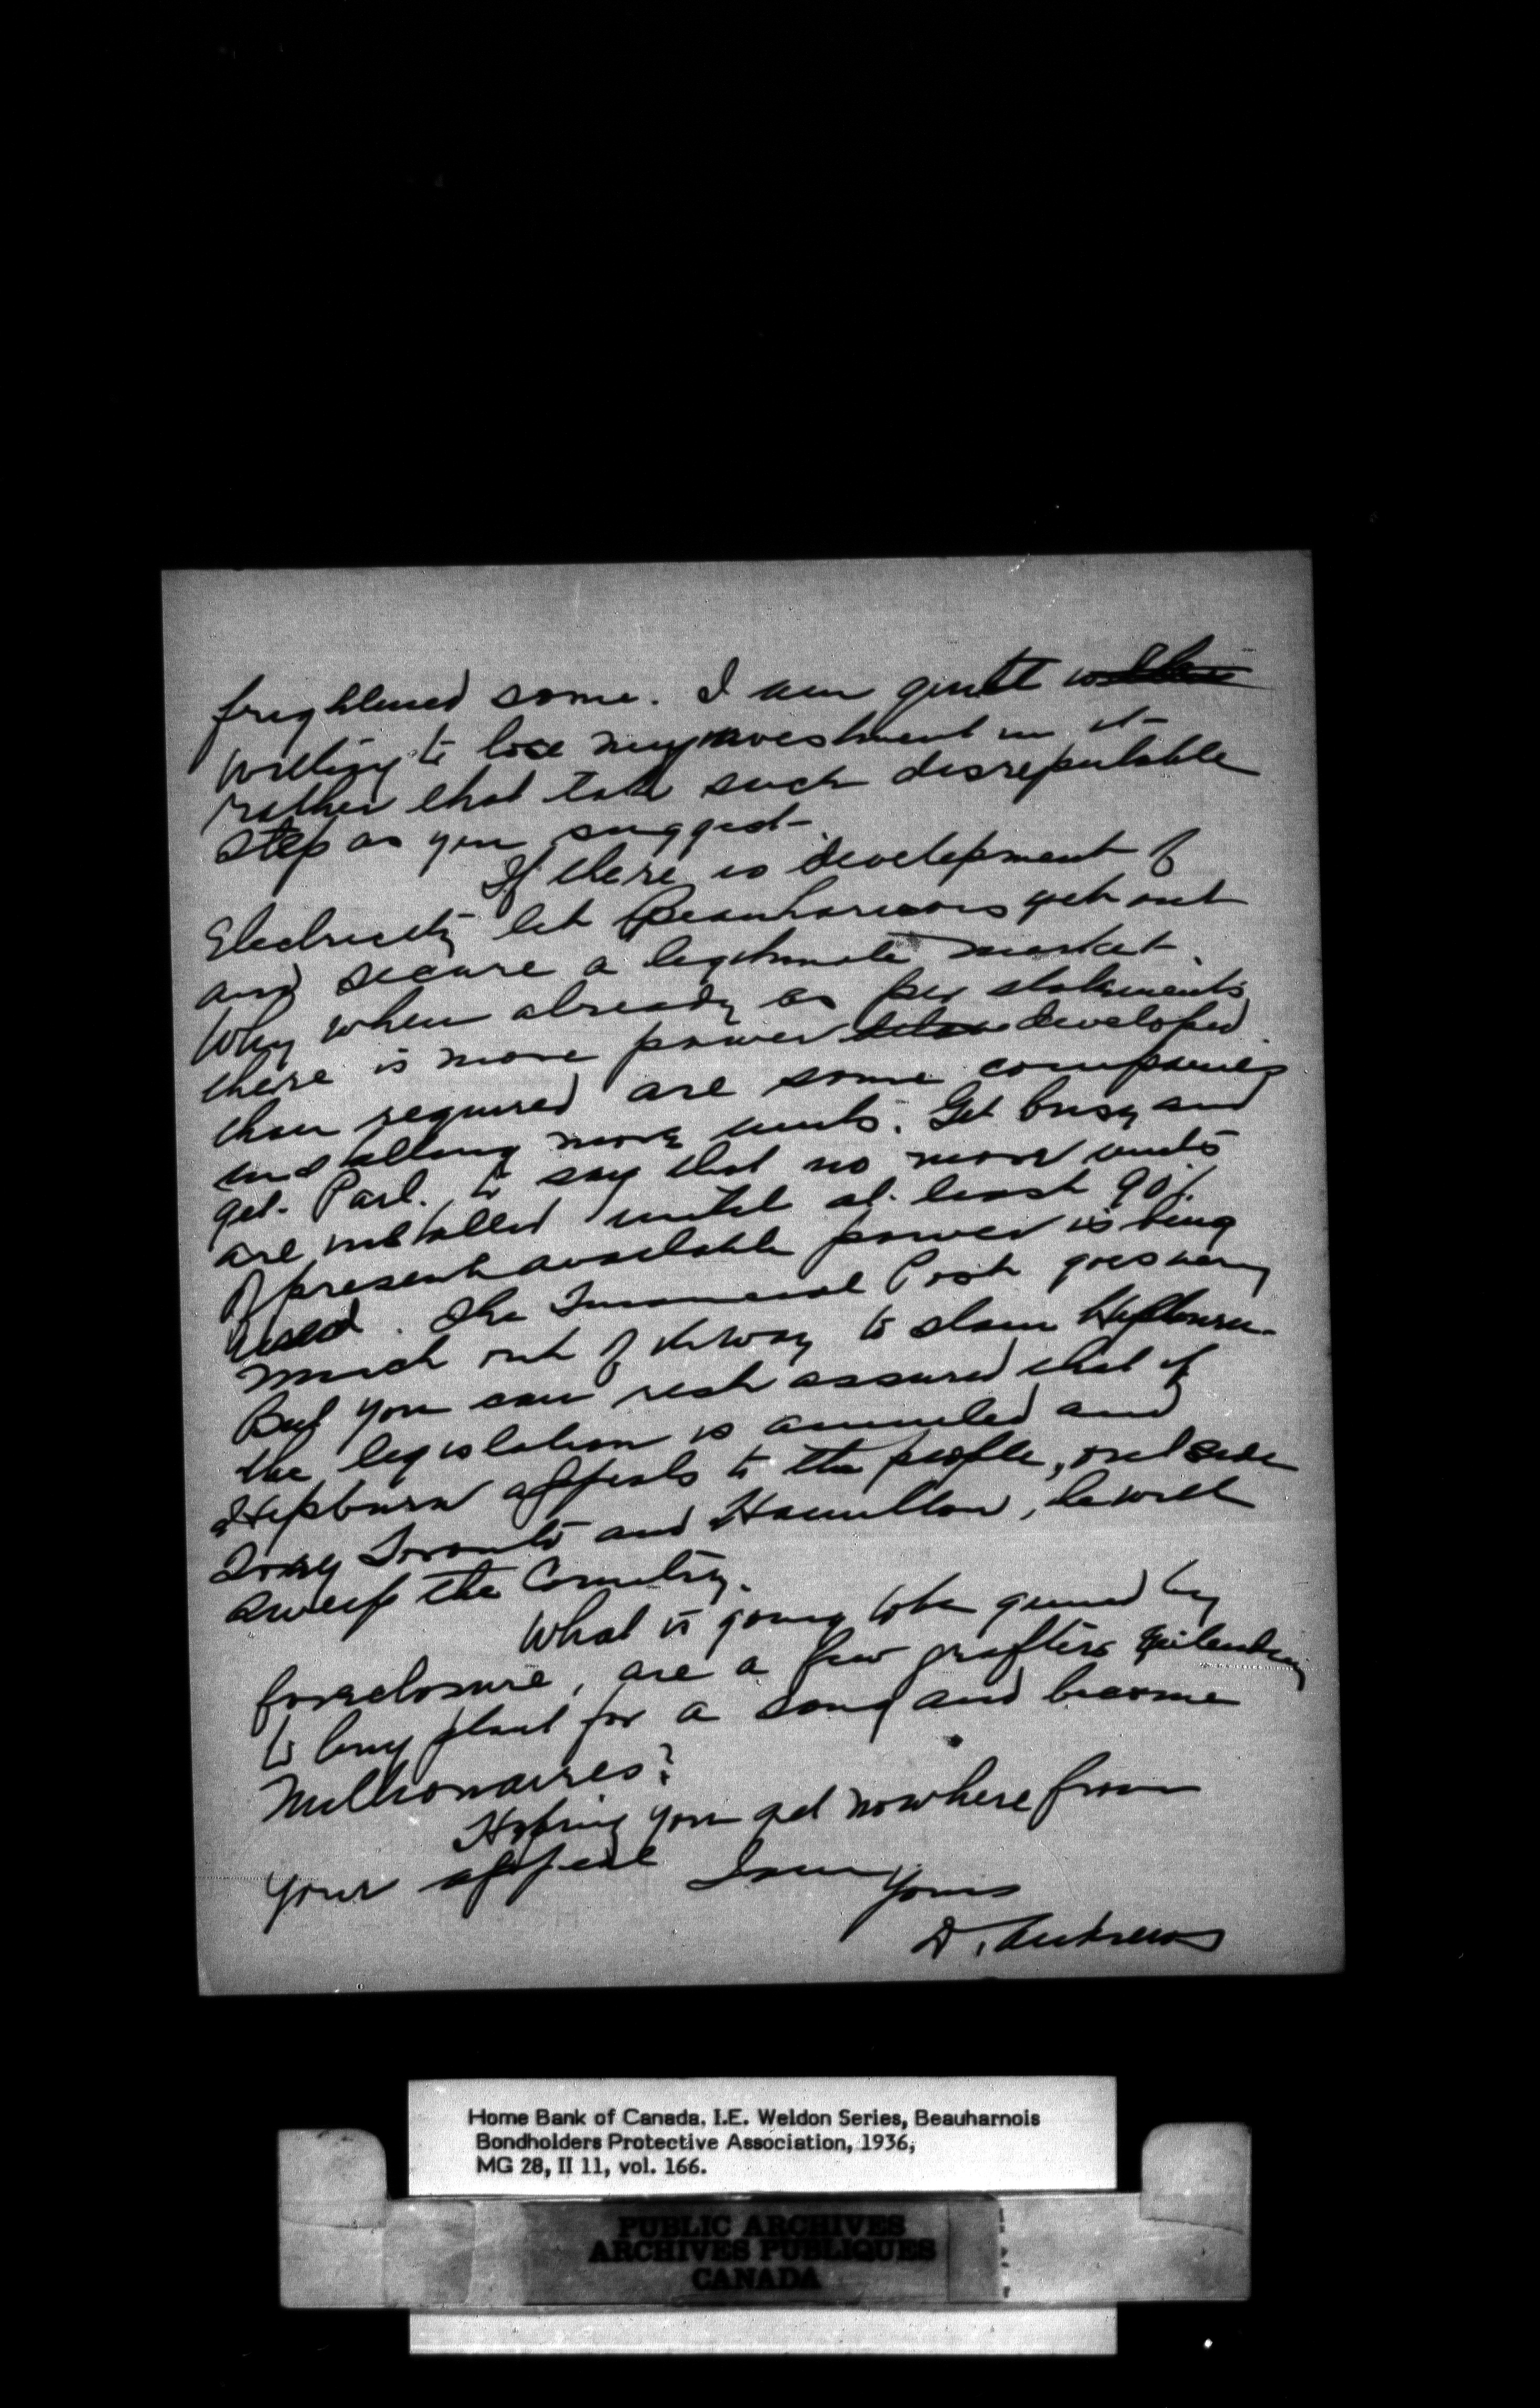 frightened some. I am quite
willing to lose my investment in it
rather that take such disreputable
step as you suggest.
If there is development of
Electricity let Beauharnois get out
and secure a legitimate market.
Why when already as per statements
there is more power developed
than required are some companies
installing more units. Get busy and
get Parl. to say that no more units
are installed until at least 90%
of present available power is being
used. The Financial Post goes very
much out of its way to slam Hepburn.
But you can rest assured that if
the legislation is annuled and
Hepburn appeals to the people, outside
Tory Toronto and Hamilton, he will
sweep the Country.
What is going to be gained by
foreclosure, are a few grafters
to buy plant for a song and become
Millionaires?
Hoping you get nowhere from
your appeal I am
Yours
D. Andrews
Home Bank of Canada. I.E. Weldon Series, Beauharnois
Bondholders Protective Association, 1936,
MG 28, II 11, vol. 166.
PUBLIC ARCHIVES
ARCHIVES PUBLIQUES
CANADA